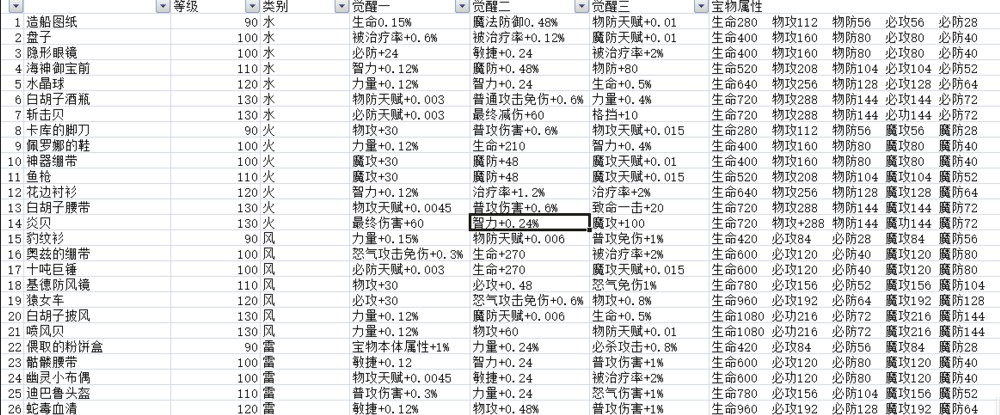 等级 类别 觉醒一 觉醒二 觉醒三 宝物属性
1 造船图纸 90 水 生命0.15% 魔法防御0.48% 物防天赋+0.01 生命280 物攻112 物防56 必攻56 必防28
2 盘子 100 水 被治疗率+0.6% 被治疗率+0.12% 魔防天赋+0.01 生命400 物攻160 物防80 必攻80 必防40
3 隐形眼镜 100 水 必防+24 敏捷+0.24 被治疗率+2% 生命400 物攻160 物防80 必攻80 必防40
4 海神御宝前 110 水 智力+0.12% 魔防+0.48% 物防+80 生命520 物攻208 物防104 必功104 必防52
5 水晶球 120 水 力量+0.12% 智力+0.24 生命+0.5% 生命640 物攻256 物防128 必攻128 必防64
6 白胡子酒瓶 130 水 物防天赋+0.003 普通攻击免伤+0.6% 力量+0.4% 生命720 物攻288 物防144 必攻144 必防72
7 斩击贝 130 水 必防天赋+0.003 最终减伤+60 格挡+10 生命720 物攻288 物防144 必功144 必防72
8 卡库的脚刀 90 火 物攻+30 普攻伤害+0.6% 物攻天赋+0.015 生命280 物攻112 物防56 魔攻56 魔防28
9 佩罗娜的鞋 100 火 力量+0.12% 生命+210 智力+0.4% 生命400 物攻160 物防80 魔攻80 魔防40
10 神器绷带 100 火 魔攻+30 魔防+48 魔攻天赋+0.01 生命400 物攻160 物防80 魔攻80 魔防40
11 鱼枪 110 火 魔攻+30 魔防+48 魔攻天赋+0.015 生命520 物攻208 物防104 魔功104 魔防52
12 花边衬衫 120 火 智力+0.12% 治疗率+1.2% 治疗率+2% 生命640 物攻256 物防128 魔攻128 魔防64
13 白胡子腰带 130 火 物攻天赋+0.0045 普攻伤害+0.6% 致命一击+20 生命720 物攻288 物防144 魔攻144 魔防72
14 炎贝 130 火 最终伤害+60 智力+0.24% 魔攻+100 生命720 物攻+288 物防144 魔功144 魔防72
15 豹纹衫 90 风 力量+0.15% 物防天赋+0.006 普攻免伤+1% 生命420 必攻84 必防28 魔攻84 魔防56
16 奥兹的绷带 100 风 怒气攻击免伤+0.3% 生命+270 被治疗率+2% 生命600 必攻120 必防40 魔攻120 魔防80
17 十吨巨锤 100 风 必防天赋+0.003 生命+270 魔攻天赋+0.015 生命600 必攻120 必防40 魔攻120 魔防80
18 基德防风镜 110 风 物攻+30 必攻+0.48 怒气免伤1% 生命780 必攻156 必防52 魔攻156 魔防104
19 猿女车 120 风 必攻+30 怒气攻击免伤+0.6% 物攻+0.8% 生命960 必攻192 必防64 魔攻192 魔防128
20 白胡子披风 130 风 力量+0.12% 魔防天赋+0.006 生命+0.5% 生命1080 必功216 必防72 魔攻216 魔防144
21 喷风贝 130 风 力量+0.12% 物攻+60 物防天赋+0.01 生命1080 必攻216 必防72 魔攻216 魔防144
22 偎取的粉饼盒 90 雷 宝物本体属性+1% 力量+0.24% 必杀攻击+0.8% 生命420 必攻84 必防56 魔攻84 魔防28
23 骷髅腰带 100 雷 敏捷+0.12 敏捷+0.24 普攻伤害+1% 生命600 必攻120 必防80 魔攻120 魔防40
24 幽灵小布偶 100 雷 物攻天赋+0.0045 敏捷+0.24 被治疗率+2% 生命600 必功120 必防80 魔攻120 魔防40
25 迪巴鲁头盔 110 雷 普攻伤害+0.3% 力量+0.24 普攻免伤+1% 生命780 必攻156 必防104 魔攻156 魔防52
26 蛇毒血清 120 雷 敏捷+0.12% 物攻+0.48% 普攻伤害+1% 生命960 必攻192 必防128 魔攻192 魔防64